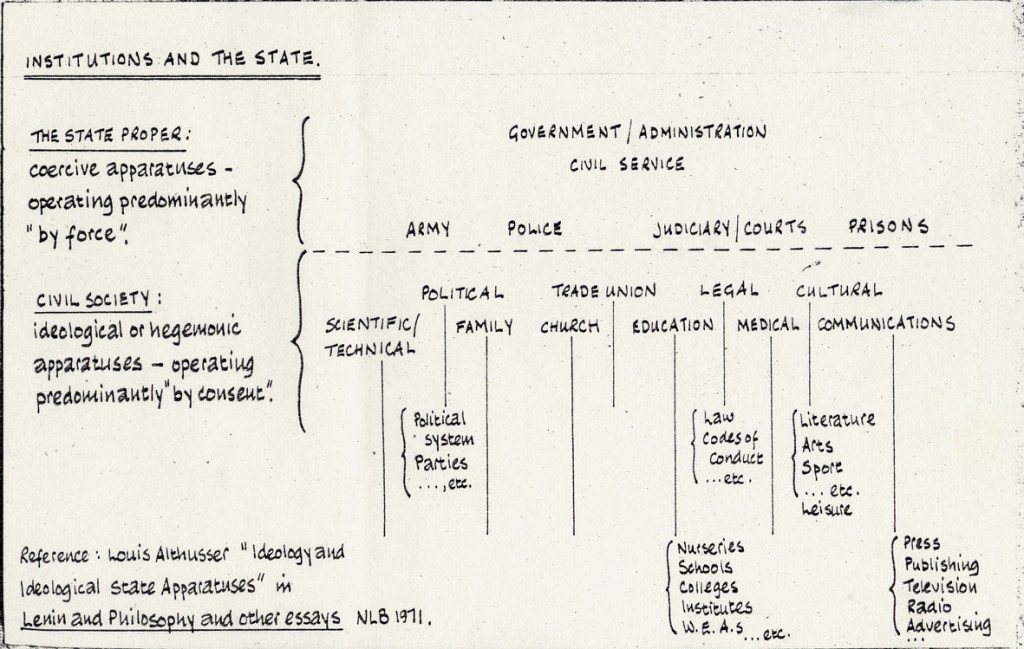 INSTITUTIONS AND THE STATE.
THE STATE PROPER:
coercive apparatuses -
operating predominantly
"by force".
GOVERNMENT / ADMINISTRATION
CIVIL SERVICE
ARMY POLICE JUDICIARY/COURTS PRISONS
CIVIL SOCIETY:
ideological or hegemonic
apparatuses - operating
predominantly "by consent".
POLITICAL TRADE UNION LEGAL CULTURAL
SCIENTIFIC/
TECHNICAL
FAMILY CHURCH EDUCATION MEDICAL COMMUNICATIONS
Political
system
Parties
...,etc.
Law
Codes of
Conduct
...etc.
Literature
Arts
Sport
... etc.
Leisure
Nurseries
Schools
Colleges
Institutes
W.E.A.s ...etc.
Press
Publishing
Television
Radio
Advertising
...
Reference: Louis Althusser "Ideology and
Ideological State Apparatuses" in
Lenin and Philosophy and other essays NLB 1971.